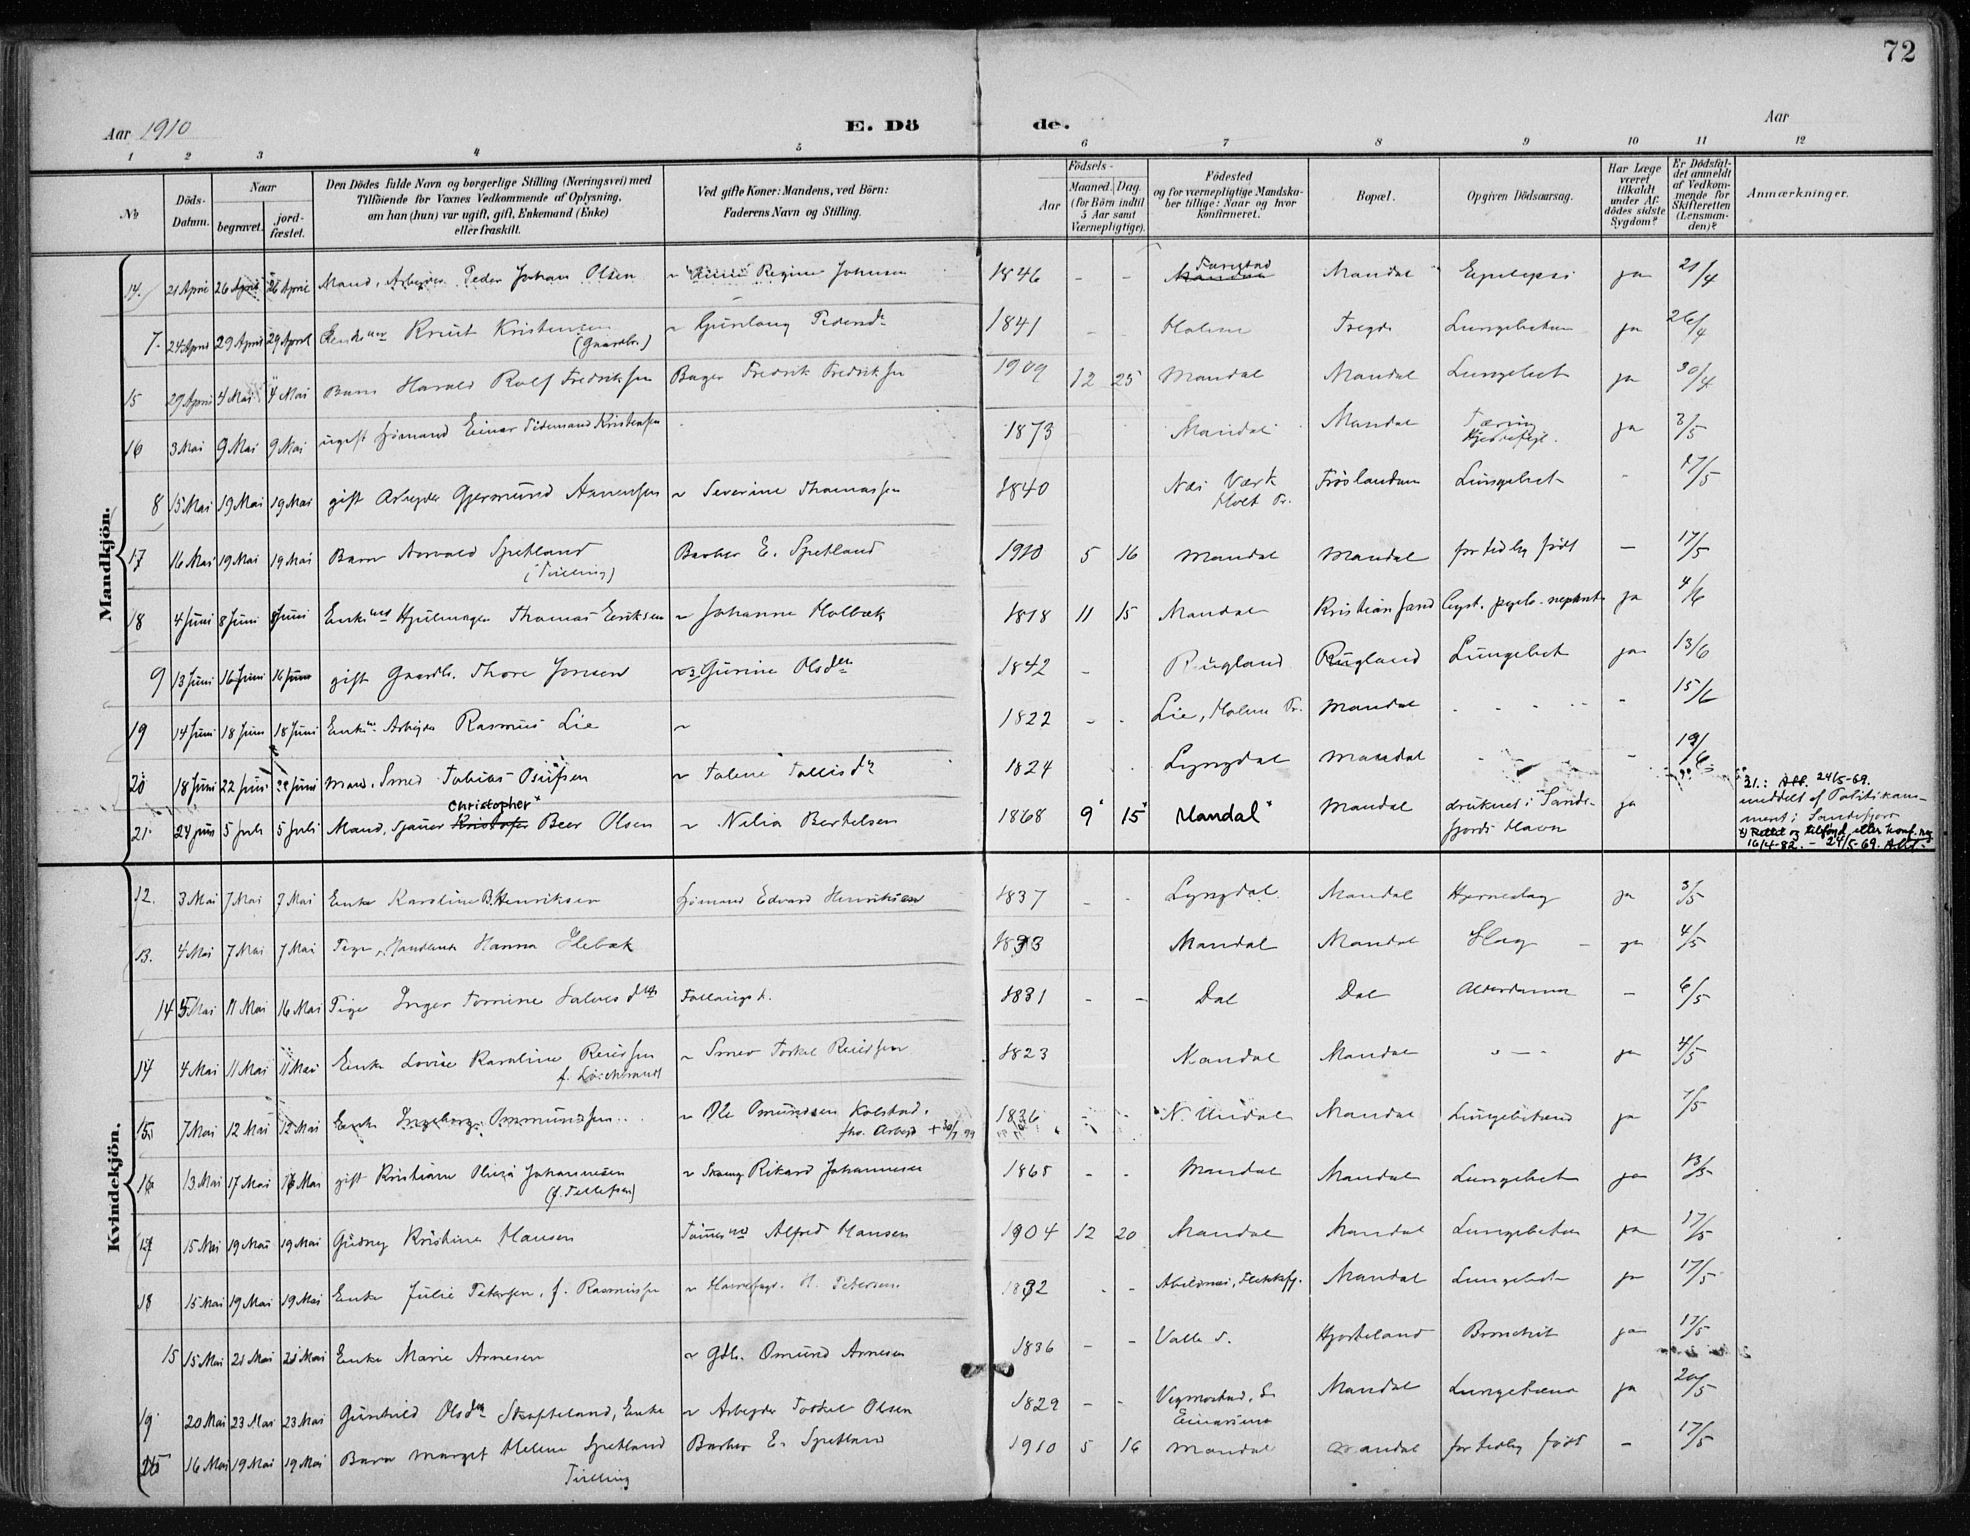 72
Aar 1910
E. Dö de.
Aar
1 2 3 4 5 6 7 8 9 10 11 12
No
Döds-Datum.
Naar begravet. jordfæstet.
Den Dödes fulde Navn og borgerlige Stilling (Næringsvei) med Tilföiende for Voxnes Vedkommende af Oplysning, om han (hun) var ugift, gift, Enkemand (Enke) eller fraskilt.
Ved gifte Koner: Mandens, ved Börn: Faderens Navn og Stilling.
Födsels-
Aar Maaned. Dag. (for Börn indtil 5 Aar samt Værnepligtige).
Födested og for værnepligtige Mandskaber tillige: Naar og hvor konfirmeret.
Bopæl.
Opgiven Dödsaarsag.
Har Læge været tilkaldt under Afdödes sidste Sygdom?
Er Dödsfaldet anmeldt af Vedkommende for Skifteretten (Lensmanden)?
Anmærkninger.
Mandkjön.
14. 21 April 26 April 26 April Mand, Arbeider Peder Johan Olsen ~ Regine Johnsen 1846 - - Mandal Mandal Epilepsi ja 21/4
7. 24 April 29 April 29 April Enkem Knut Kristensen (Gaardbr.) ~ Gunlaug Pedersdr 1841 - - Holme Tregde Lungebetæn ja 26/4
15 29 April 4 Mai 4 Mai Barn Harald Rolf Fredriksen Bager Fredrik Fredriksen 1909 12 25 Mandal Mandal Lungebet ja 30/4
16 3 Mai 9 Mai 9 Mai ugift Sjömand Einar Tidemand Kristensen 1873 Mandal Mandal Tæring Hjertefeil. ja 3/5
8 15 Mai 19 Mai 19 Mai gift Arbeyder Gjermund Aanensen ~ Severine Thomassen 1840 Næs Værk Holt Pr. Fröslandum Lungebet - 17/5
17 16 Mai 19 Mai 19 Mai Barn Arvald Spetland (Tvilling) Barber E. Spetland 1910 5 16 Mandal Mandal for tidlig födt - 17/5
18 4 Juni 8 Juni 8 Juni Enkem Hjulmager Thomas Eriksen ~ Johanne Holbæk 1818 11 15 Mandal Kristiansand Cyst. pyelo-nephrit ja 4/6
9 13 Juni 16 Juni 16 Juni gift Gaardb. Thore Jonsen ~ Gurine Olsden 1842 - Rugland Rugland Lungebet ja 13/6
19 14 Juni 18 Juni 18 Juni Enkem Arbejder Rasmus Lie ~ 1822 - - Lie, Holme Pr. Mandal - - - - 15/6
20 18 Juni 22 Juni 22 Juni Mand. Smed Tobias Osufsen ~ Talene Tallisdr 1824 Lyngdal Mandal - - 19/6
21. 24 juni 5 Juli 5 Juli Mand, Sjauer Kristofer Christopher* Beer Olsen ~ Nilia Bertelsen 1868 9* 15* Mandal* Mandal druknet i Sandefjords Havn ja
21.: 24/5-69.
meddelt af Politikammeret i Sandefjord
x) Rettet og tilføyd etter konf. reg 16/4-82. - 24/5-69.
Kvindekjön.
12. 3 Mai 7 Mai 7 Mai Enke Karoline B. Henriksen Sjömand Edvard Henriksen 1837 - - Lyngdal Mandal Hjerneslag ja 3/5
13. 4 Mai 7 Mai 7 Mai Pige, Handlende Hanna Ilebæk 1893 Mandal Mandal Slag - ja 4/5
14 5 Mai 11 Mai 16 Mai Pige Inger Tomine 1831 - - Dal Dal Alderdom - 6/5
14 4 Mai 11 Mai 11 Mai Enke Lovise Karoline Reiersen ~ Smed Torkel Reiersen 1823 Mandal Mandal " - " ja 4/5
15 7 Mai 12 Mai 12 Mai Enke Ingeborg Ommundsen ~ Ole Omundsen Kolstad. fhv. Arbeid + 30/7 99 1836 N. Undal Mandal Lungebetænd ja 7/5
16 13 Mai 17 Mai 17 Mai gift Kristiane Olivia Johannesen (f. Tellefsen) ~ Skomag Rikard Johannesen 1865 - - Mandal Mandal Lungebet ja 13/5
17 15 Mai 19 Mai 19 Mai Gudny Kristine Hansen Tömmerm Alfred Hansen 1904 12 20 Mandal Mandal Lungebetæn ja 17/5
18 15 Mai 19 Mai 19 Mai Enke Julie Petersen, f. Rasmussen ~ Havnefogd. H. Petersen 1832 - - Abelsnæs, Flekkefj. Mandal Lungebet ja 17/5
15 15 Mai 21 Mai 21 Mai Enke Marie Arnesen ~ Gdb. Omund Arnesen 1836 - - Valle s. Hjorteland Bronchit ja 17/5
19 20 Mai 23 Mai 23 Mai Gunhild Olsden Skofteland, Enke ~ Arbejder Torkel Olsen 1829 - - Vegmostad, S. Mandal Lungebetænd ja 20/5
16 Mai 19 Mai 19 Mai Barn Marget Helene Spetland Tvilling Barber E. Spetland 1910 5 16 Mandal Mandal for tidlig födt - 17/5